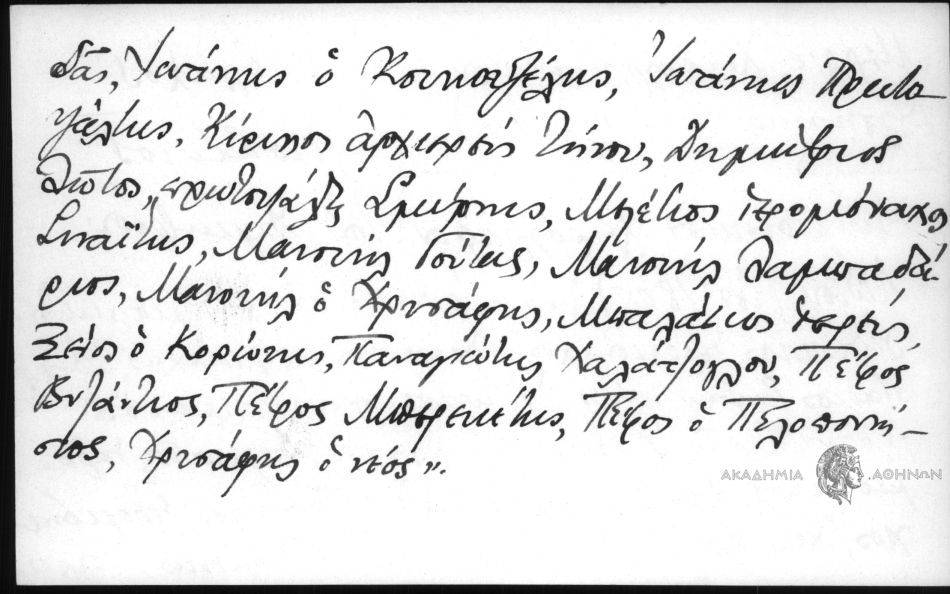 δᾶς, Ἰωάννης ὁ Κουκουζέλης, Ἰωάννης Πρωτο
ψάλτης, Κύριλλος ἀρχιερεύς Τήνου, Δημήτριος
Λῶτος, πρωτοψάλτης Σμύρνης, Μελέτιος ἱερομόναχος
Σιναΐτης, Μανουήλ Γούτας, Μανουήλ Λαμπαδά-
ριος, Μανουήλ ὁ Χρυσάφης, Μπαλάσιος ἱερεύς,
Ξένος ὁ Κορώνης, Παναγιώτης Χαλάτζογλου, Πέτρος
Βυζάντιος, Πέτρος Μπερεκέτης, Πέτρος ὁ Πελοποννή-
σιος, Χρυσάφης ὁ νέος".
ΑΚΑΔΗΜΙΑ ΑΘΗΝΩΝ